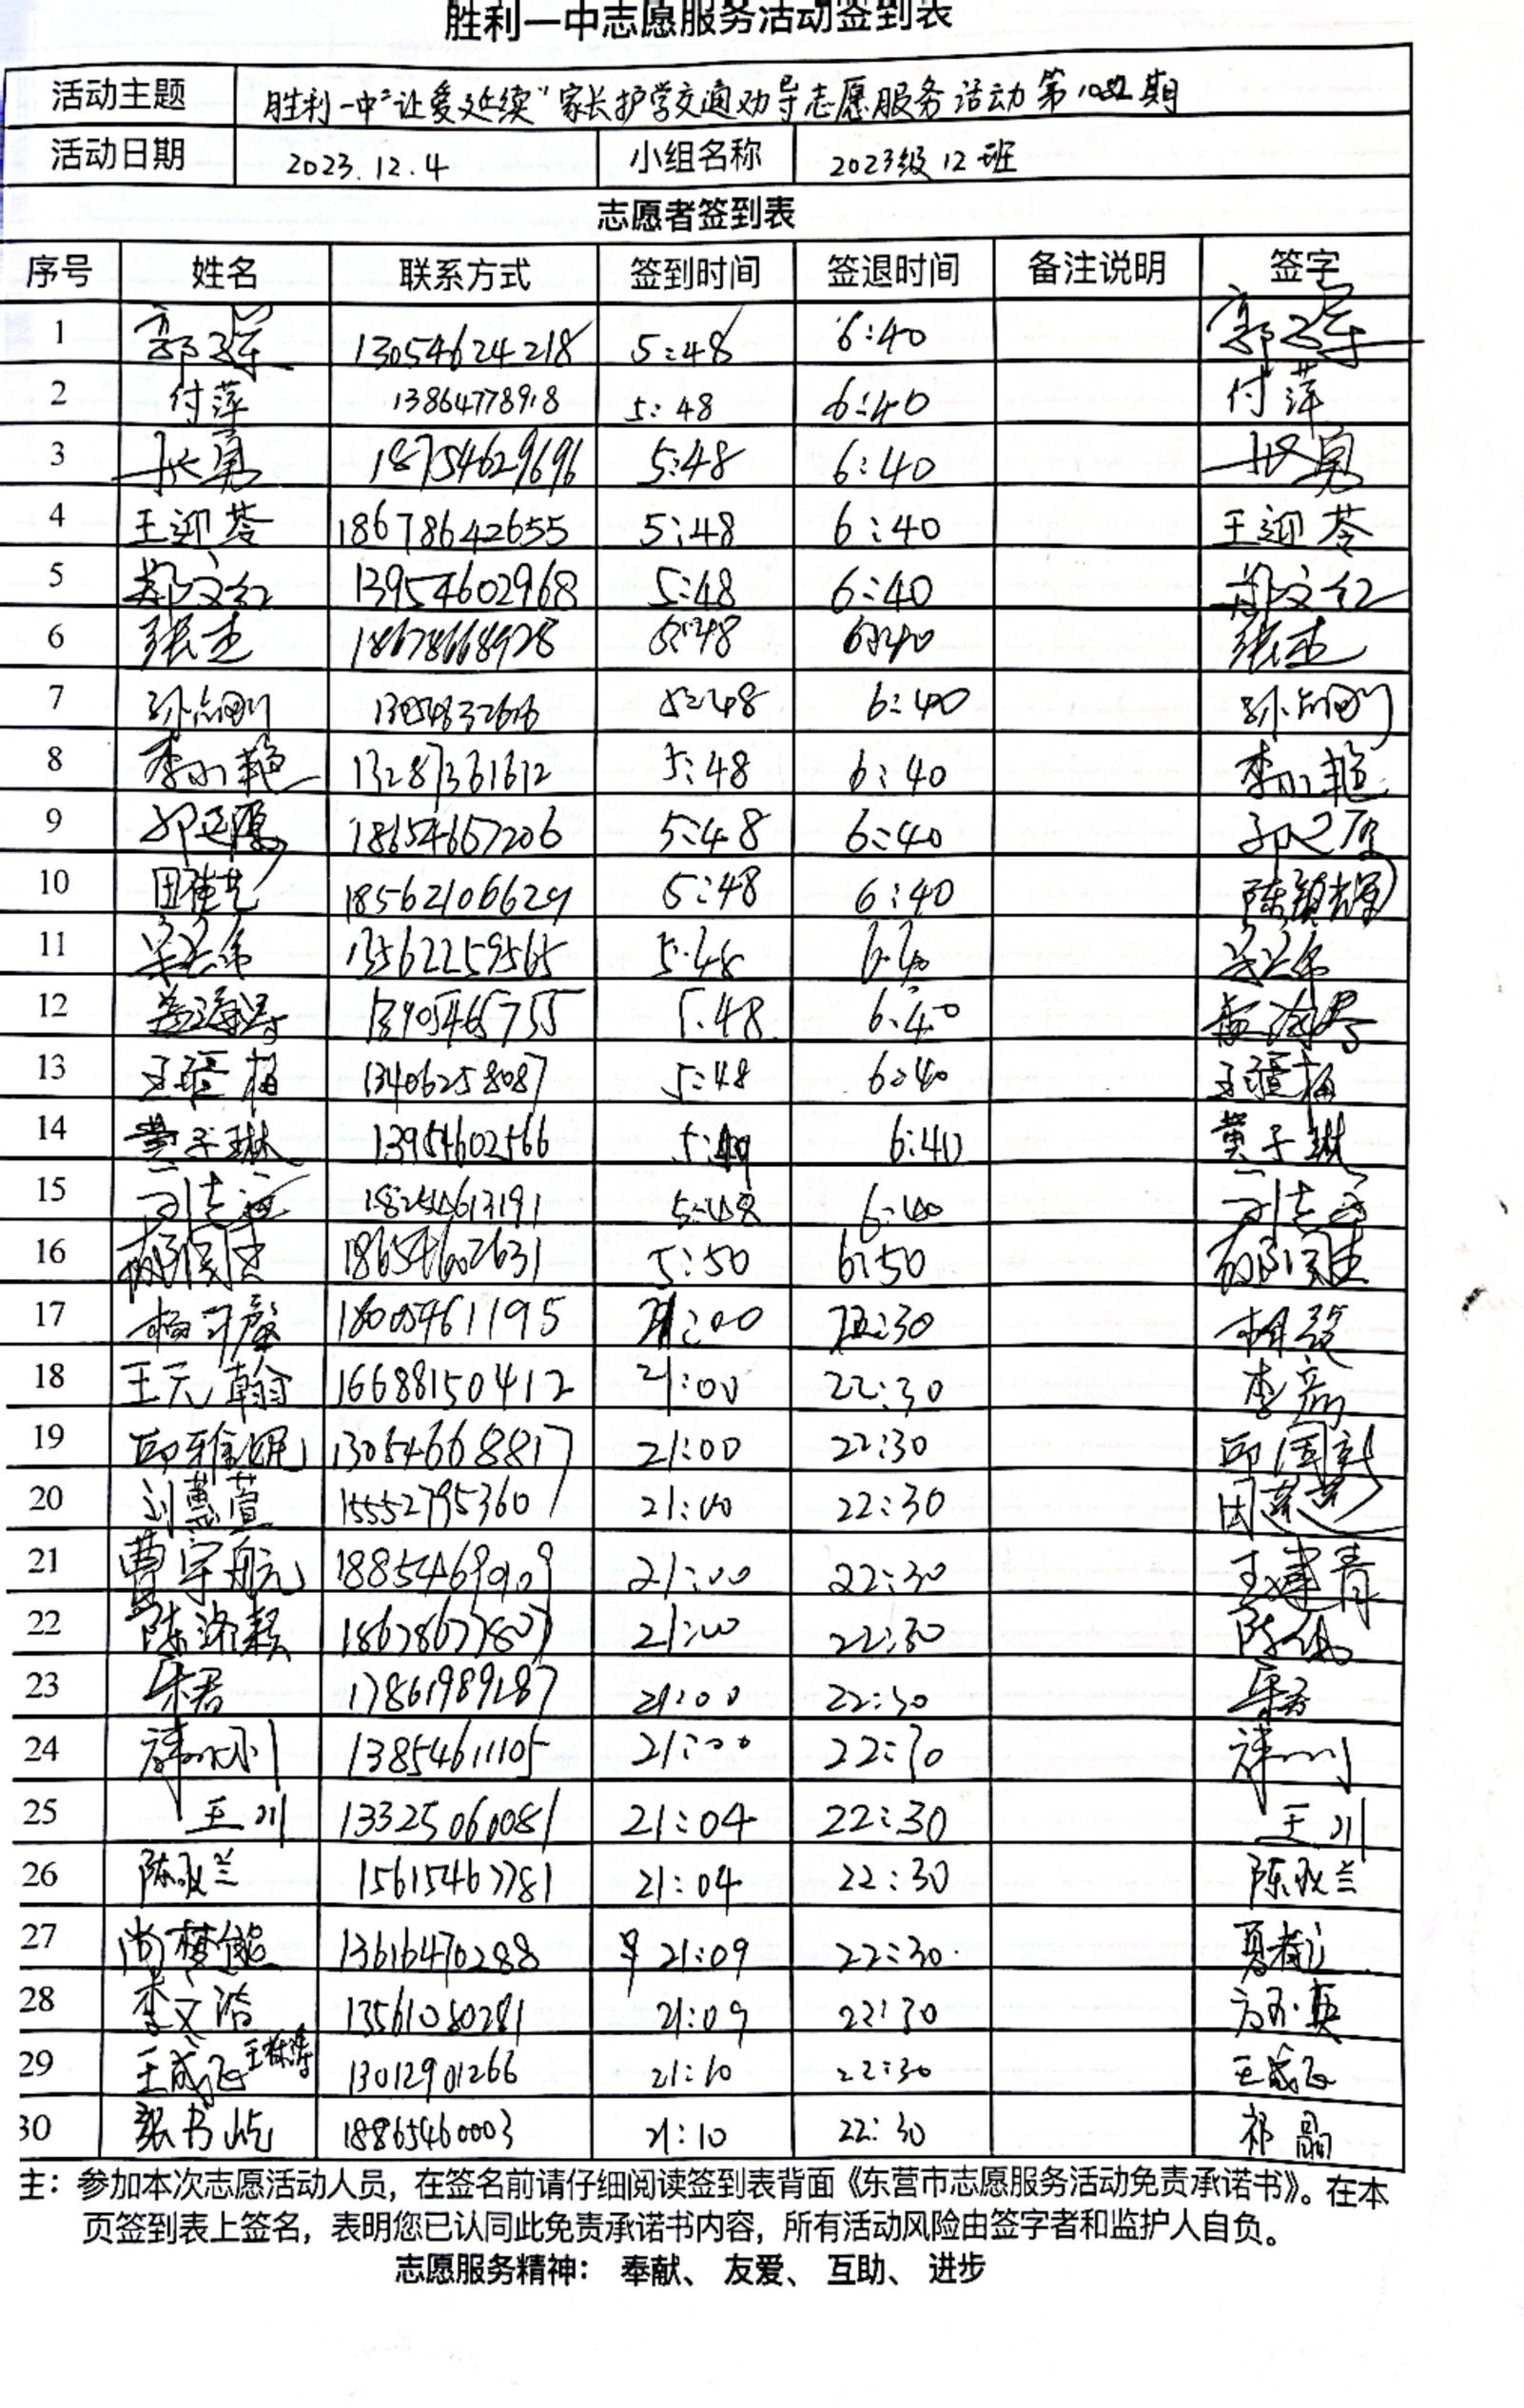 胜利一中志愿服务活动签到表
活动主题 胜利一中"让爱延续"家长护学交通劝导志愿服务活动第 期
活动日期 2023.12.4 小组名称 2023级12班
志愿者签到表
序号 姓名 联系方式 签到时间 签退时间 备注说明 签字
1 13054624218 5:48 6:40
2 付萍 13864778918 5:48 6:40 付萍
3 张勇 18754629696 5:48 6:40 张勇
4 王迎苓 18678642655 5:48 6:40 王迎苓
5 郑文红 13954602968 5:48 6:40 郑文红
6 张杰 18678668928 5:48 6:40 张杰
7 5:48 6:40
8 李小艳 13287361612 5:48 6:40 李小艳
9 18654667206 5:48 6:40
10 田佳艺 18562106629 5:48 6:40 陈镇辉
11 13562259565 5:48 6:40
12 5:48 6:40
13 13406258087 5:48 6:40
14 黄子琳 13954602566 6:40 黄子琳
15 18254613191 5:48 6:40
16 18654602631 5:50 6:50
17 18005461195 21:00 22:30
18 王天翰 16688150412 21:00 22:30 李彦
19 13054668817 21:00 22:30 邱国新
20 刘蕙萱 15552795360 21:00 22:30
21 曹宇航 18854690109 21:00 22:30 王建青
22 陈洛颖 18678677807 21:00 22:30
23 宋君 17861989287 21:00 22:30 宋君
24 13854611105 21:00 22:30
25 王川 13325060081 21:04 22:30 王川
26 陈秋兰 15615467781 21:04 22:30 陈秋兰
27 尚梦熊 13616470288 21:09 22:30
28 李文浩 13561080281 21:09 22:30
29 王成正 王栋涛 13012901266 21:10 22:30 王成正
30 张书屹 18865460003 21:10 22:30 祁晶
主：参加本次志愿活动人员，在签名前请仔细阅读签到表背面《东营市志愿服务活动免责承诺书》。在本
页签到表上签名，表明您已认同此免责承诺书内容，所有活动风险由签字者和监护人自负。
志愿服务精神： 奉献、 友爱、 互助、 进步